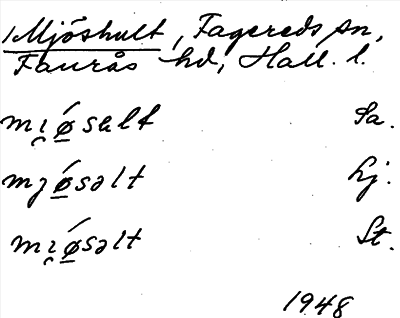 Mjöshult, Fagereds sn,
Faurås hd, Hall. l.
mi̯ǿ̠sult Sa.
mjǿ̠səlt Lj.
mi̯ǿ̠səlt St.
1948